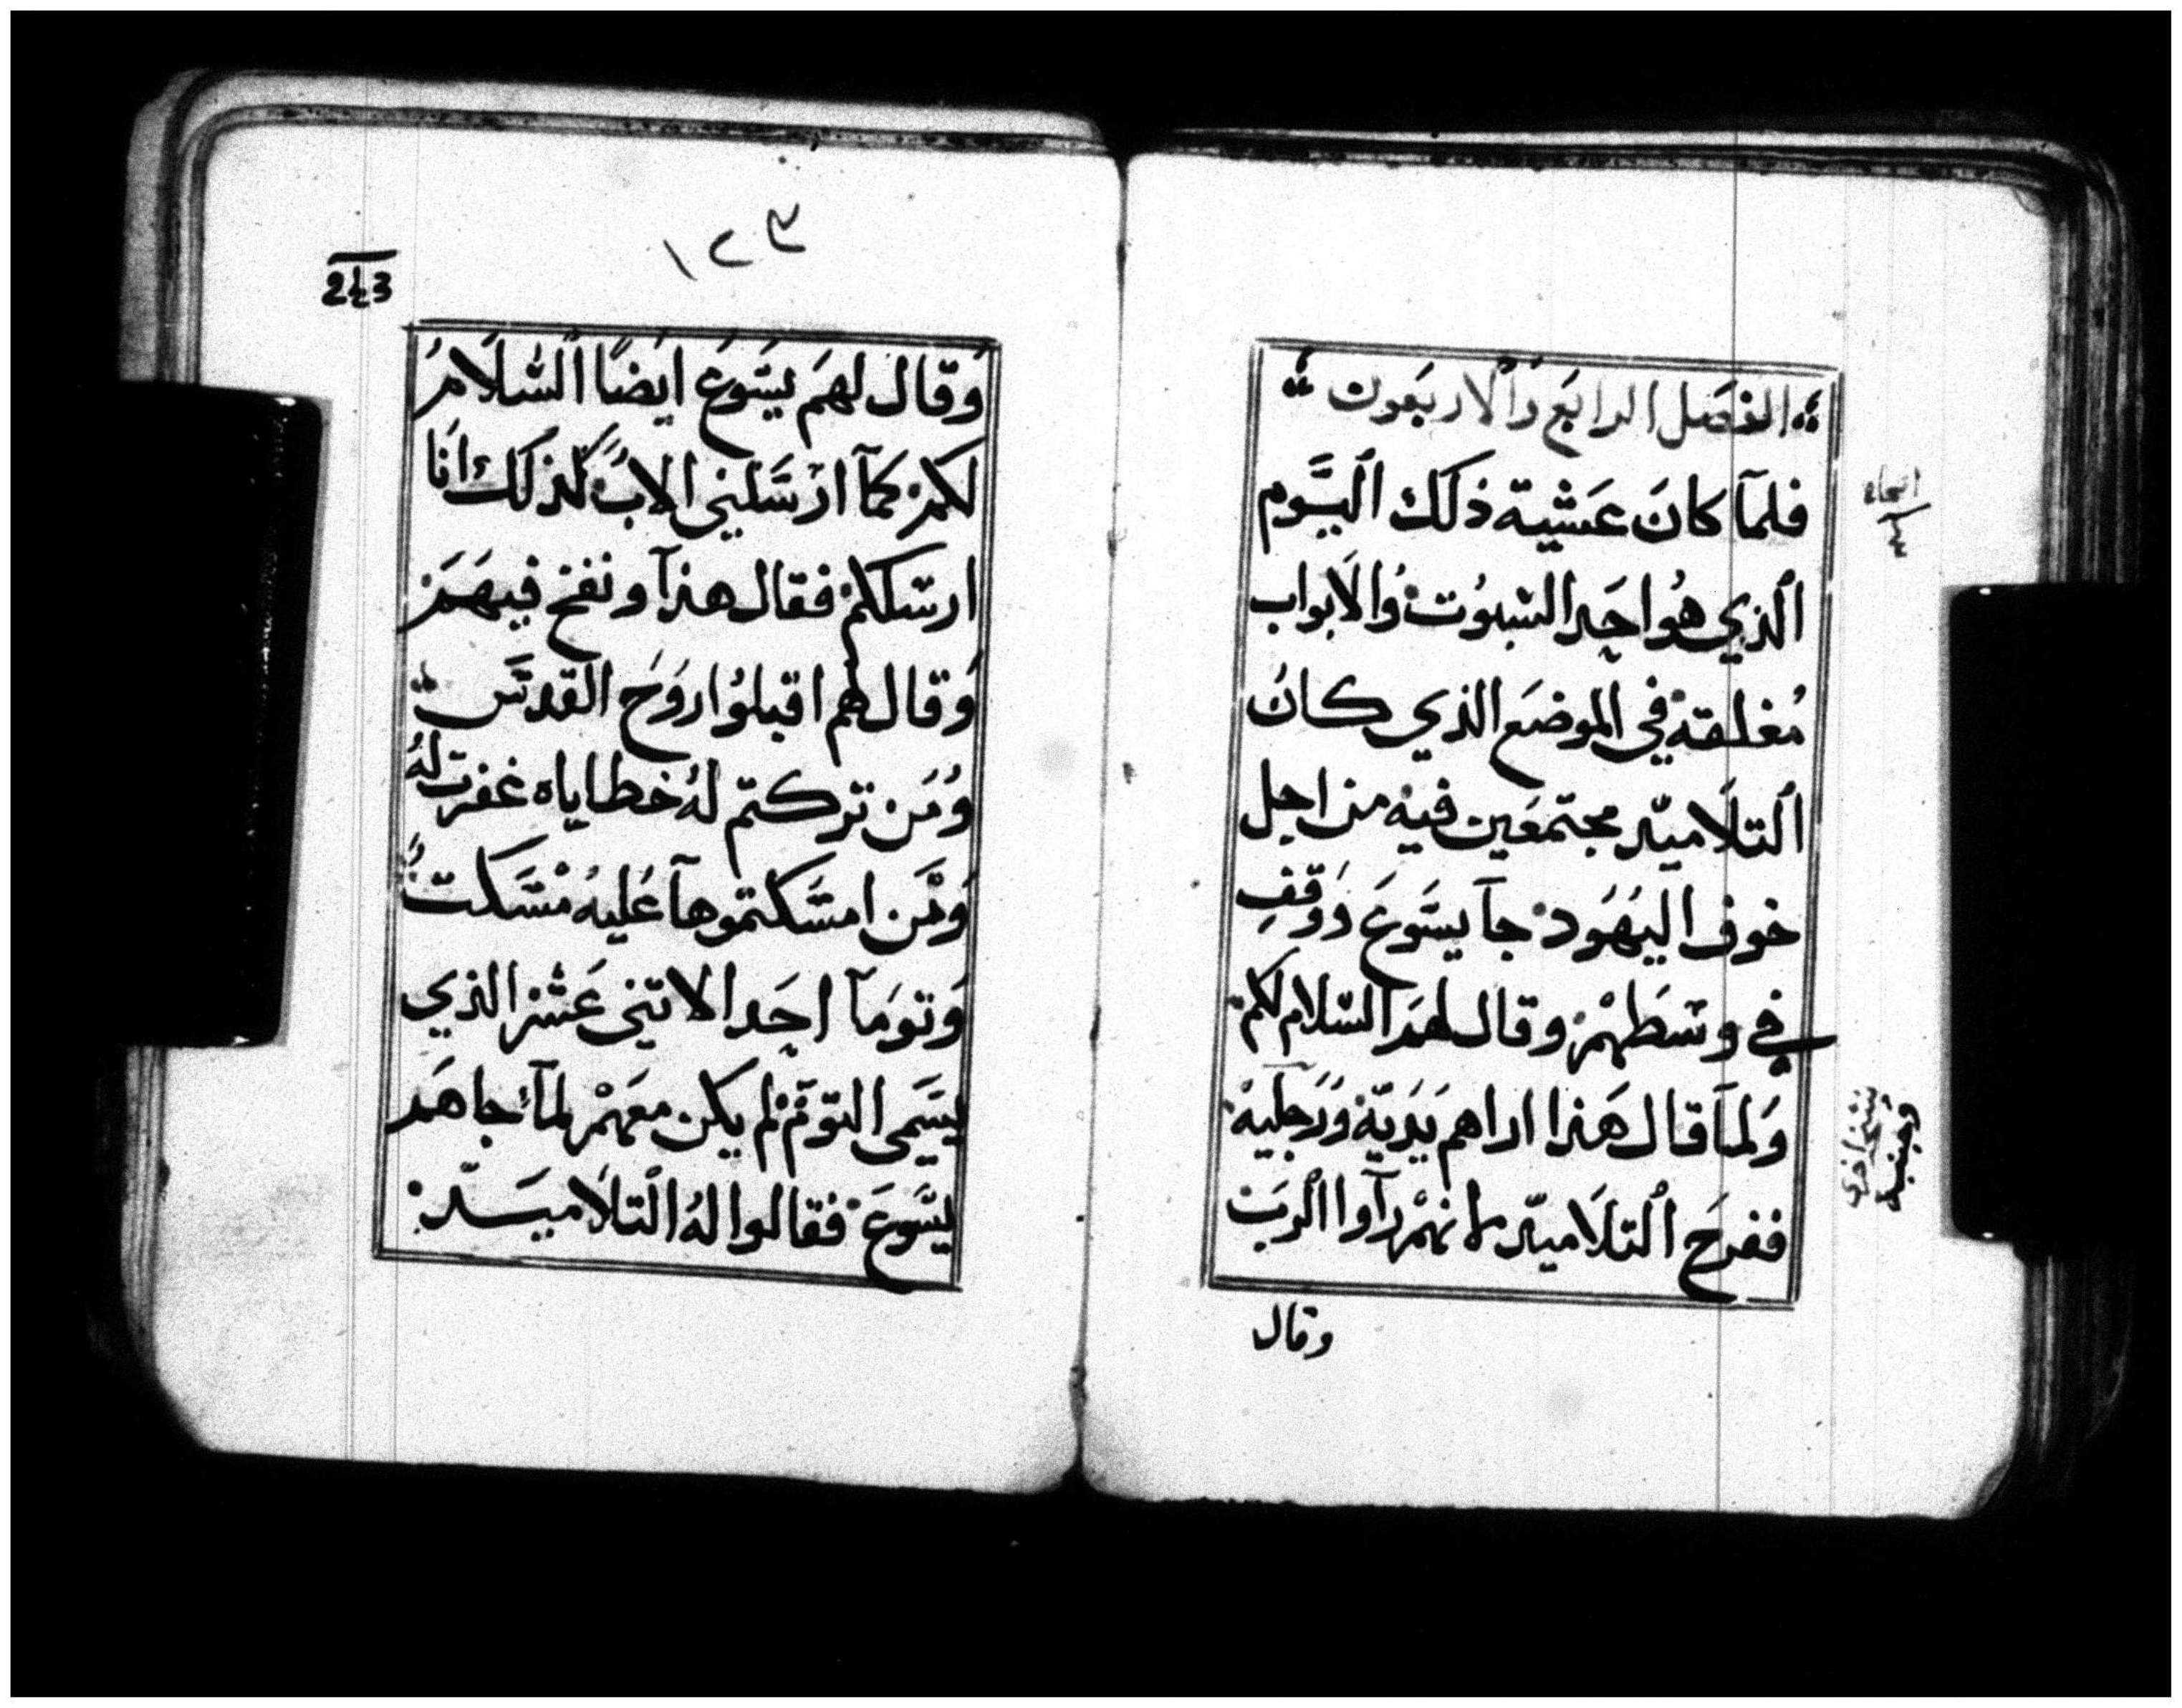 الفصل الرابع والاربعون
فلمآ كانَ عَشية ذلك اليَّوم
الذي هُو احَد السّبوُت وُالابواب
مُغلقة في الموضَع الذي كانُ
التلاميّد مجتمعَين فيه من اجل
خوف اليهَوُد جآ يسَّوعَ ووَقفِ
في وسَطهمْ وقال لهمَ السّلام لكم
وَلمآ قال هَذا اراهم يَديَّة وَرَجليهْ
ففرحَ التلاميّد لانهمْ رآوا الربَ
وقال
١٢٣
243
وَقال لهمَ يسَّوعَ ايضًا السّلامُ
لكم كمآ ارَسَّلني الابُ كذلك انا
ارسَلكمْ فقال هذآ ونفخ فيهمَ
وَقال لهم اقبلوُا روَحَ القدسَّ
وُمَن تركتم لهُ خطاياه غفرت لهُ
وَمَن امسَّكتموهآ عَليهُ مسَّكتُ
وَتومَآ احَد الاتنى عَشر الذي
يسَّمى التوَّم لم يكن معَهمْ لمآ جاهمَ
يسَّوعَ فقالوا لهُ التلاميَّد